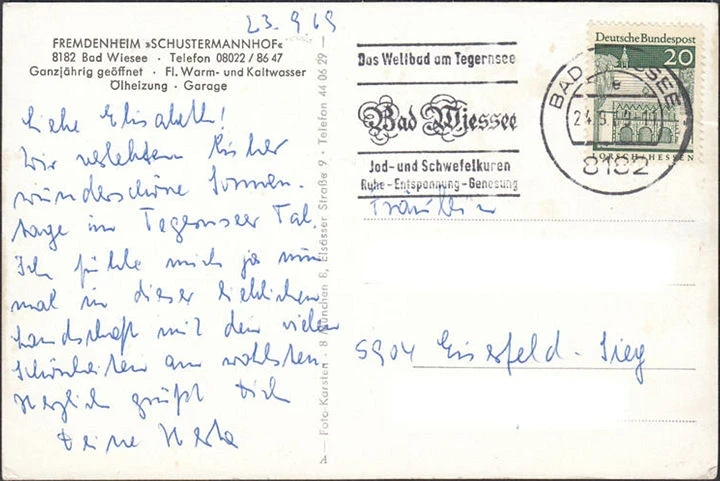 23.9.69
FREMDENHEIM »SCHUSTERMANNHOF«
8182 Bad Wiesee · Telefon 08022 / 86 47
Ganzjährig geöffnet · Fl. Warm- und Kaltwasser
Ölheizung · Garage
Liebe Elisabeth!
Wir verlebten bisher
wunderschöne Sonnen-
tage im Tegernseer Tal.
Ich fühle mich ja nun
mal in dieser lieblichen
Landschaft mit den vielen
Schönheiten am wohlsten.
Herzlich grüßt Dich
Deine Herta
A — Foto-Karsten · 8 München 8, Elsässer Straße 9 · Telefon 44 06 29 —
Das Weltbad am Tegernsee
Bad Wiessee
Jod- und Schwefelkuren
Ruhe - Entspannung - Genesung
BAD WIESSEE
e
24.9.69-11
8182
Deutsche Bundespost
20
LORSCH/HESSEN
Fräulein
5904 Eiserfeld - Sieg